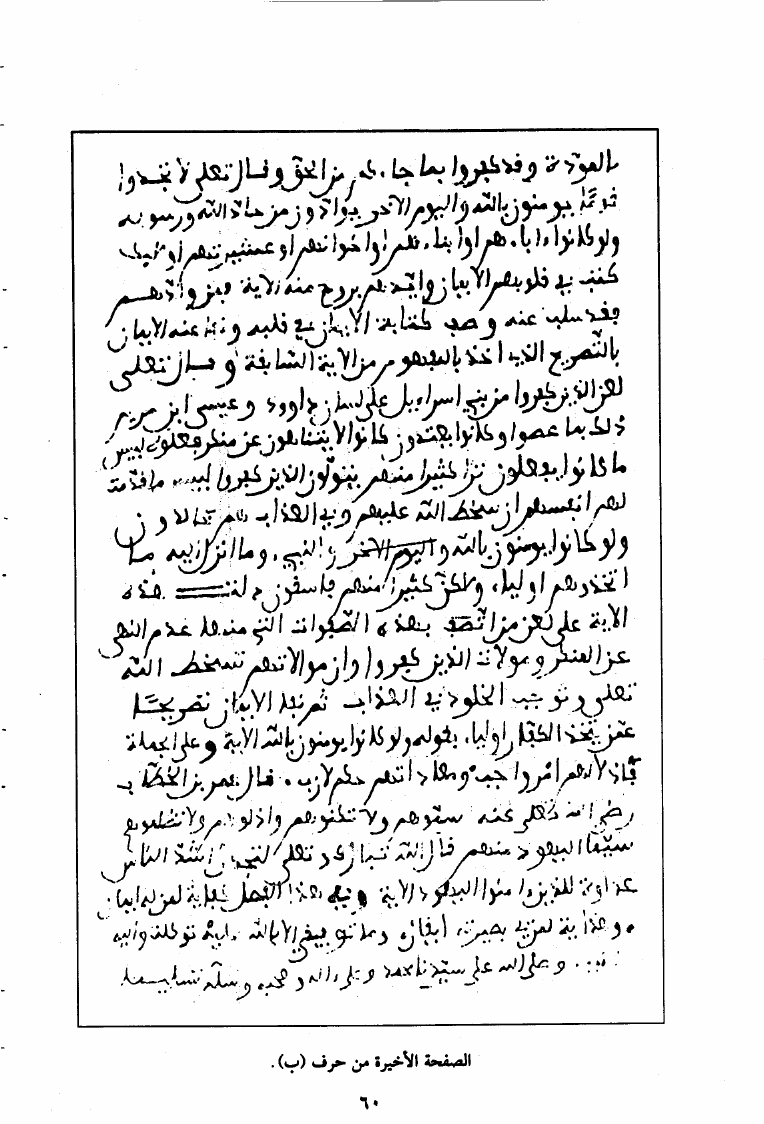 بالمودة وقد كفروا بما جاءكم من الحق وقال تعلى لا تجدوا
قوما يومنون بالله واليوم الآخر يوادون من حاد الله ورسوله
ولو كانوا ءاباءهم أو أبناءهم أو إخوانهم أو عشيرتهم أوليك
كتب في قلوبهم الايمان وأيدهم بروح منه الآية فمن وادهم
فقد سلب عنه وصف كتابة الايمان في قلبه ونفا عنه الايمان
بالتصريح الذي أخذ بالمفهوم من الاية السابقة وقال تعلى
لعن الذين كفروا من بني اسراءيل على لسان داوود وعيسى ابن مريم
ذلك بما عصوا وكانوا يعتدون كانوا لا يتناهون عن منكر فعلوه لبيس
ما كانوا يفعلون ترا كثيرا منهم يتولون الذين كفروا لبيس ما قدمت
لهم أنفسهم أن سخط الله عليهم وفي العذاب هم خالدون
ولو كانوا يومنون بالله والنبيء وما أنزل إليه ما
اتخذوهم أولياء ولكن كثيرا منهم فاسقون دلت هذه
الآية على لعن من اتصف بهذه الصفات التي منها عدم النهي
عن المنكر وموالات الذين كفروا وأن موالاتهم تسخط الله
تعلى وتوجب الخلود في العذاب ثم نفا الايمان تصريحا
عمن يتخذ الكفار أولياء بقوله ولو كانوا يومنون بالله الاية وعلى الجملة
فإذلالهم أمر واجب ومعاداتهم حكم لازب قال عمر بن الخطاب
رضي الله تعلى عنه سموهم ولا تكنوهم وأذلوهم ولا تظلموهم
سيما اليهود منهم قال الله تبارك وتعلى لتجدن أشد الناس
عداوة للذين ءامنوا اليهود الاية وفي هذا الفصل كفاية لمن له إيمان
وهداية لمن له بصيرة إيقان وما توفيقي الا بالله عليه توكلت وإليه
أنيب وصلى الله على سيدنا محمد وعلى ءاله وصحبه وسلم تسليما
الصفحة الأخيرة من حرف (ب).
٦٠